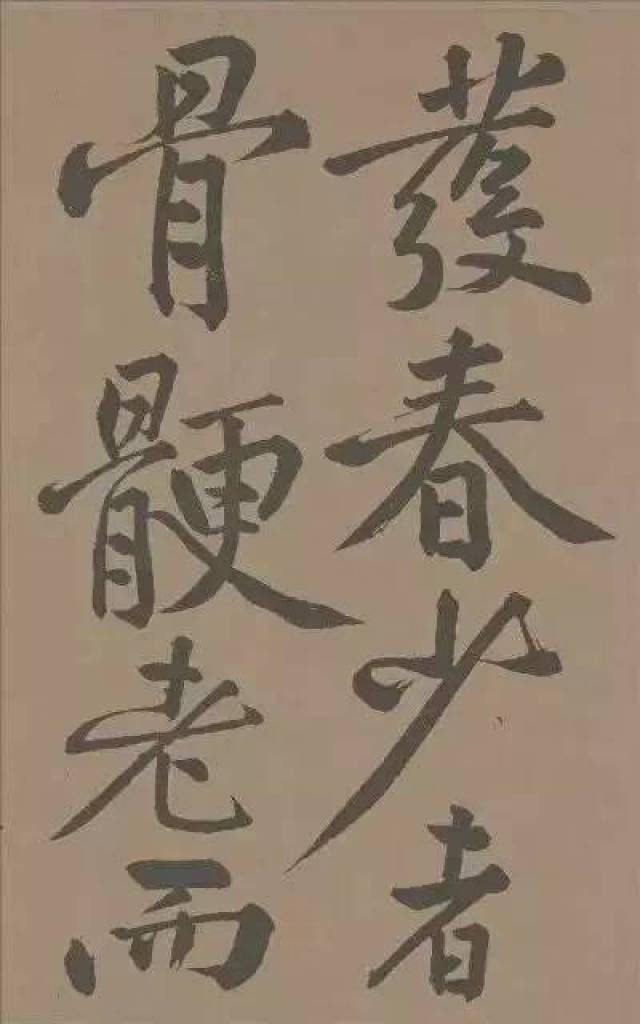 發春少者
骨鯁老而